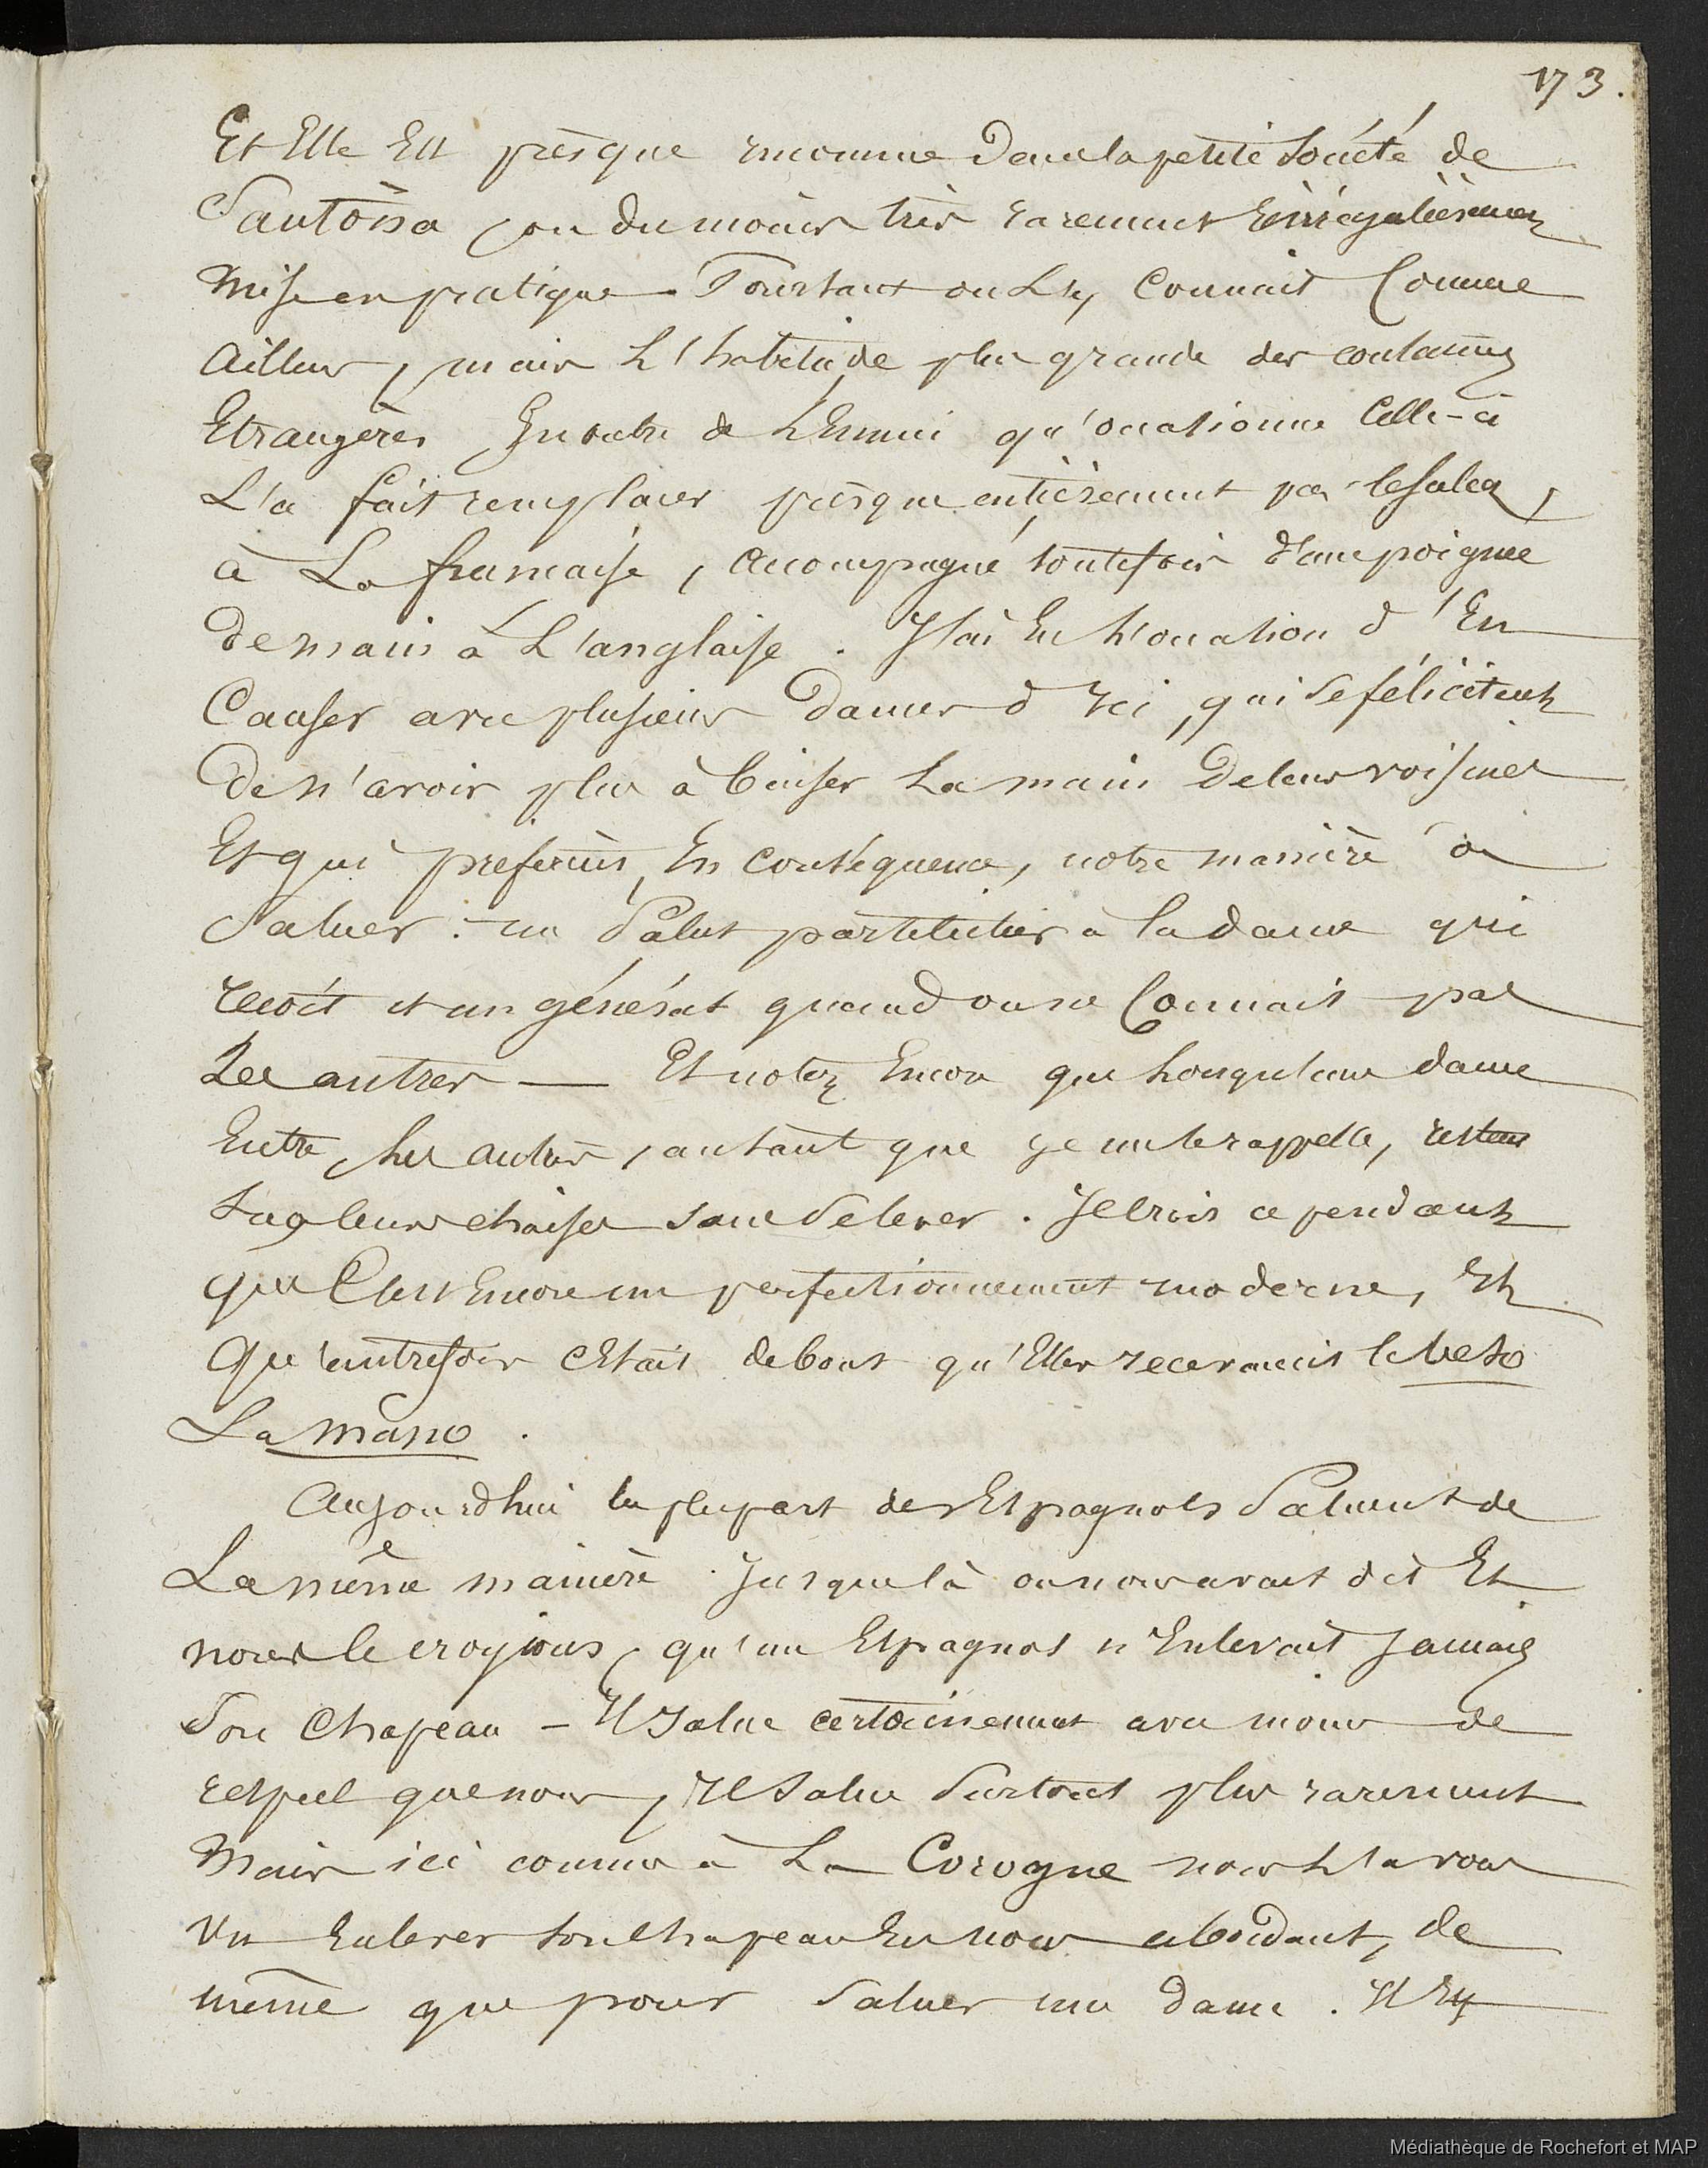 173.
Et Elle Est presque inconnue Dans la petite Société de
Santoña, ou du moins très rarement Et irrégulièrement
Mise en pratique. Pourtant on L'y connait Comme
Ailleurs, mais L'habitude plus grande des coutumes
Etrangères En outre de L'Ennui qu'occasionne Celle-ci
L'a fait remplacer presque entièrement par le salut
à La française, accompagné toutefois d'une poignée
De main à L'anglaise. J'ai Eu L'occasion d'En
Causer avec plusieurs Dames d'Ici, qui se félicitent
De n'avoir plus à baiser La main De leurs voisines
Et qui préfèrent, En conséquence, notre manière de
Saluer : un Salut particulier à la dame qui
reçoit et un général quand on ne Connait pas
Les autres — Et notez Encore que Lorsqu'une dame
Entre, Les autres, autant que je me le rappelle, restent
Sur leurs chaises sans se lever. Je crois cependant
que C'est Encore un perfectionnement moderne, Et
Qu'autrefois c'était debout qu'Elles recevaient le beso
La mano.
Aujourdhui la plupart des Espagnols Saluent de
La même manière. Jusque là on nous avait dit Et
nous le croyions, qu'un Espagnol n'Enlevait Jamais
Son Chapeau — Il salue certainement avec moins de
respect que nous, Il Salue Surtout plus rarement
Mais ici comme à La Corogne nous L'avons
Vu Enlever son chapeau En nous abordant, de
même que pour Saluer une dame. Il Ey
Médiathèque de Rochefort et MAP